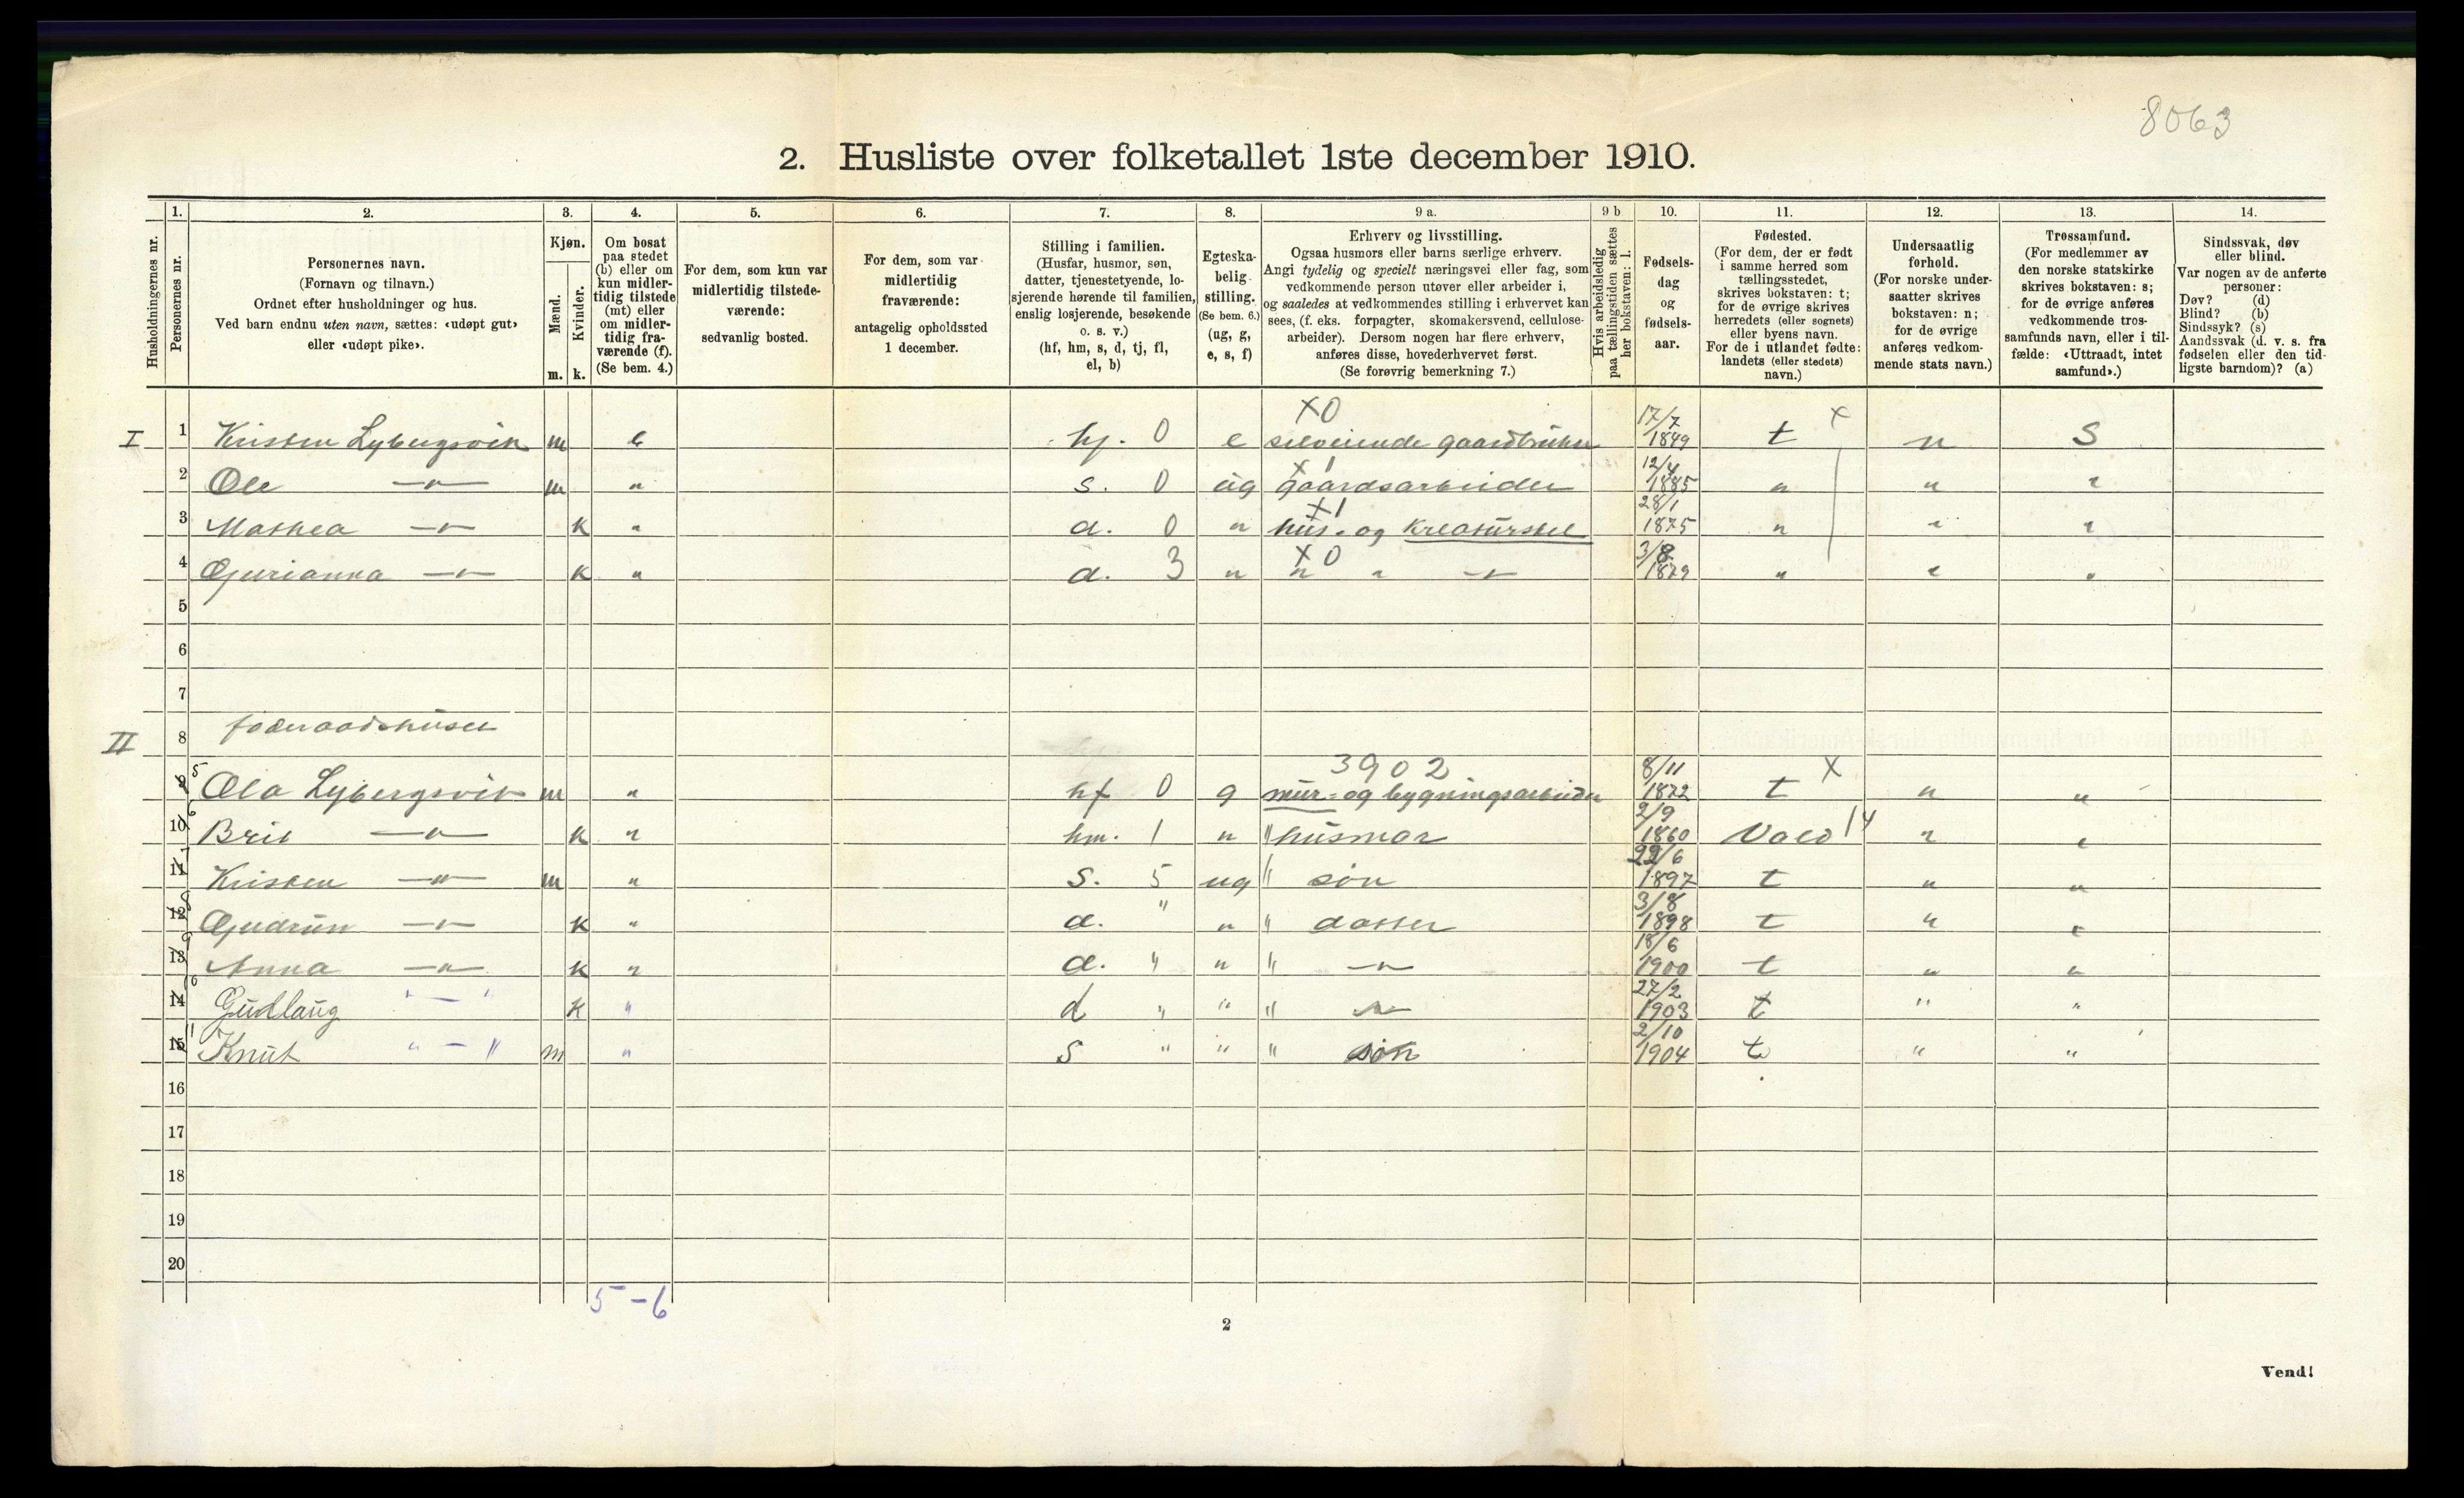 8063
2. Husliste over folketallet 1ste december 1910.
Husholdningernes nr.
1.
Personernes nr.
2.
Personernes navn.
(Fornavn og tilnavn.)
Ordnet efter husholdninger og hus.
Ved barn endnu uten navn, sættes: «udøpt gut»
eller «udøpt pike».
3.
Kjøn.
Mænd.
Kvinder.
m. k.
4.
Om bosat
paa stedet
(b) eller om
kun midler-
tidig tilstede
(mt) eller
om midler-
tidig fra-
værende (f).
(Se bem. 4.)
5.
For dem, som kun var
midlertidig tilstede-
værende:
sedvanlig bosted.
6.
For dem, som var
midlertidig
fraværende:
antagelig opholdssted
1 december.
7.
Stilling i familien.
(Husfar, husmor, søn,
datter, tjenestetyende, lo-
sjerende hørende til familien,
enslig losjerende, besøkende
o. s. v.)
(hf, hm, s, d, tj, fl,
el, b)
8.
Egteska-
belig
stilling.
(Se bem. 6.)
(ug, g,
e, s, f)
9 a.
Erhverv og livsstilling.
Ogsaa husmors eller barns særlige erhverv.
Angi tydelig og specielt næringsvei eller fag, som
vedkommende person utøver eller arbeider i,
og saaledes at vedkommendes stilling i erhvervet kan
sees, (f. eks. forpagter, skomakersvend, cellulose-
arbeider). Dersom nogen har flere erhverv,
anføres disse, hovederhvervet først.
(Se forøvrig bemerkning 7.)
9 b
Hvis arbeidsledig
paa tællingstiden sættes
her bokstaven: l.
10.
Fødsels-
dag
og
fødsels-
aar.
11.
Fødested.
(For dem, der er født
i samme herred som
tællingsstedet,
skrives bokstaven: t;
for de øvrige skrives
herredets (eller sognets)
eller byens navn.
For de i utlandet fødte:
landets (eller stedets)
navn.)
12.
Undersaatlig
forhold.
(For norske under-
saatter skrives
bokstaven: n;
for de øvrige
anføres vedkom-
mende stats navn.)
13.
Trossamfund.
(For medlemmer av
den norske statskirke
skrives bokstaven: s;
for de øvrige anføres
vedkommende tros-
samfunds navn, eller i til-
fælde: «Uttraadt, intet
samfund».)
14.
Sindssvak, døv
eller blind.
Var nogen av de anførte
personer:
Døv? (d)
Blind? (b)
Sindssyk? (s)
Aandssvak (d. v. s. fra
fødselen eller den tid-
ligste barndom)? (a)
I 1 Kristen Lybergsvik m b hf. 0 e selveiende gaardbruker X0 17/7 1849 t X n S
2 Ole —"— m " s. 0 ug gaardsarbeider X1 12/4 1885 " " "
3 Mathea —"— k " d. 0 " hus- og kreaturstel X1 28/1 1875 " " "
4 Gurianna —"— k " d. 3 " " " —"— X0 3/8 1879 " " "
5
6
7
II 8 føderaadshuset
9 5 Ola Lybergsvik m " hf 0 g 3902 mur- og bygningsarbeider 8/11 1872 t X " "
10 6 Brit —"— k " hm. 1 " " husmor 2/9 1860 14 " "
11 7 Kristen —"— m " S. 5 ug " søn 22/6 1897 t " "
12 8 Gudrun —"— k " d. " " " datter 3/8 1898 t " "
13 9 Anna —"— k " d. " " " —"— 18/6 1900 t " "
14 10 Gudlaug "—" k " d " " " —"— 27/2 1903 t " "
15 11 Knut "—" m " S " " " søn 2/10 1904 t " "
16
17
18
19
20
5 - 6
2
Vend!